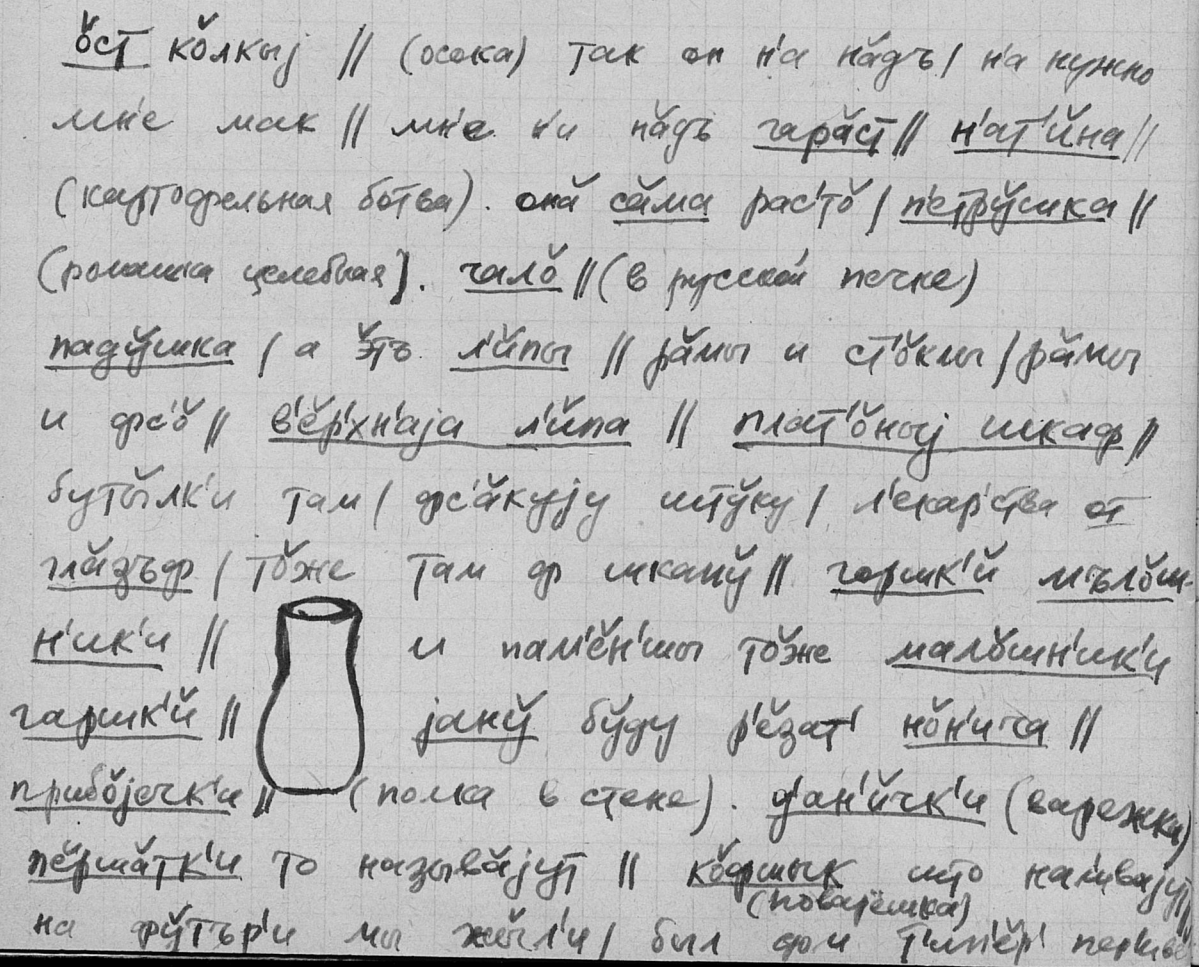 о̆ст ко̆лкыj // (осока) так он н'а нӑдъ / н'а нужно
мн'е мак // мн'е н'и нӑдъ гарӑст // н'ат'йна //
(картофельная ботва). онӑ сӑма рас'то̆ / п'етрўшка //
(ромашка целебная). чало̆ // (в русской печке)
падўшка / а э̆тъ л'йпы // рӑмы и ст'о̆клы / рӑмы
и фс'о̆ // в'ӗр'хн'аjа л'йпа // плат'о̆ныj шкаф //
буты̆лк'и там / фс'ӑкуjу штўку / л'екар'ства от
глӑзъф / то̆же там ф шкапў // гаршк'й мъло̆ш-
н'ик'и // и пам'ӗн'шы то̆же мало̆шн'ик'и
гаршк'й // jанў бўду р'ӗзат' но̆н'ича //
прибо̆jечк'и // (полка в стене). д'ан'йчк'и (варежки)
п'ершӑтк'и то назывӑjут // ко̆фшык што нал'ивајут //
(поварёшка)
на фўтър'и мы жы̆л'и / был дом т'ип'ӗр'